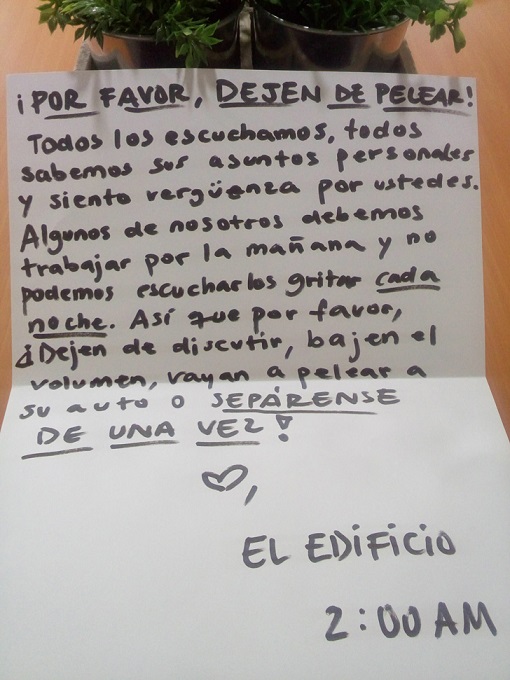 ¡POR FAVOR, DEJEN DE PELEAR!
Todos los escuchamos, todos
sabemos sus asuntos personales
y siento vergüenza por ustedes.
Algunos de nosotros debemos
trabajar por la mañana y no
podemos escucharlos gritar cada
noche. Así que por favor,
¡Dejen de discutir, bajen el
volumen, vayan a pelear a
su auto o SEPÁRENSE
DE UNA VEZ!
♡,
EL EDIFICIO
2:00 AM